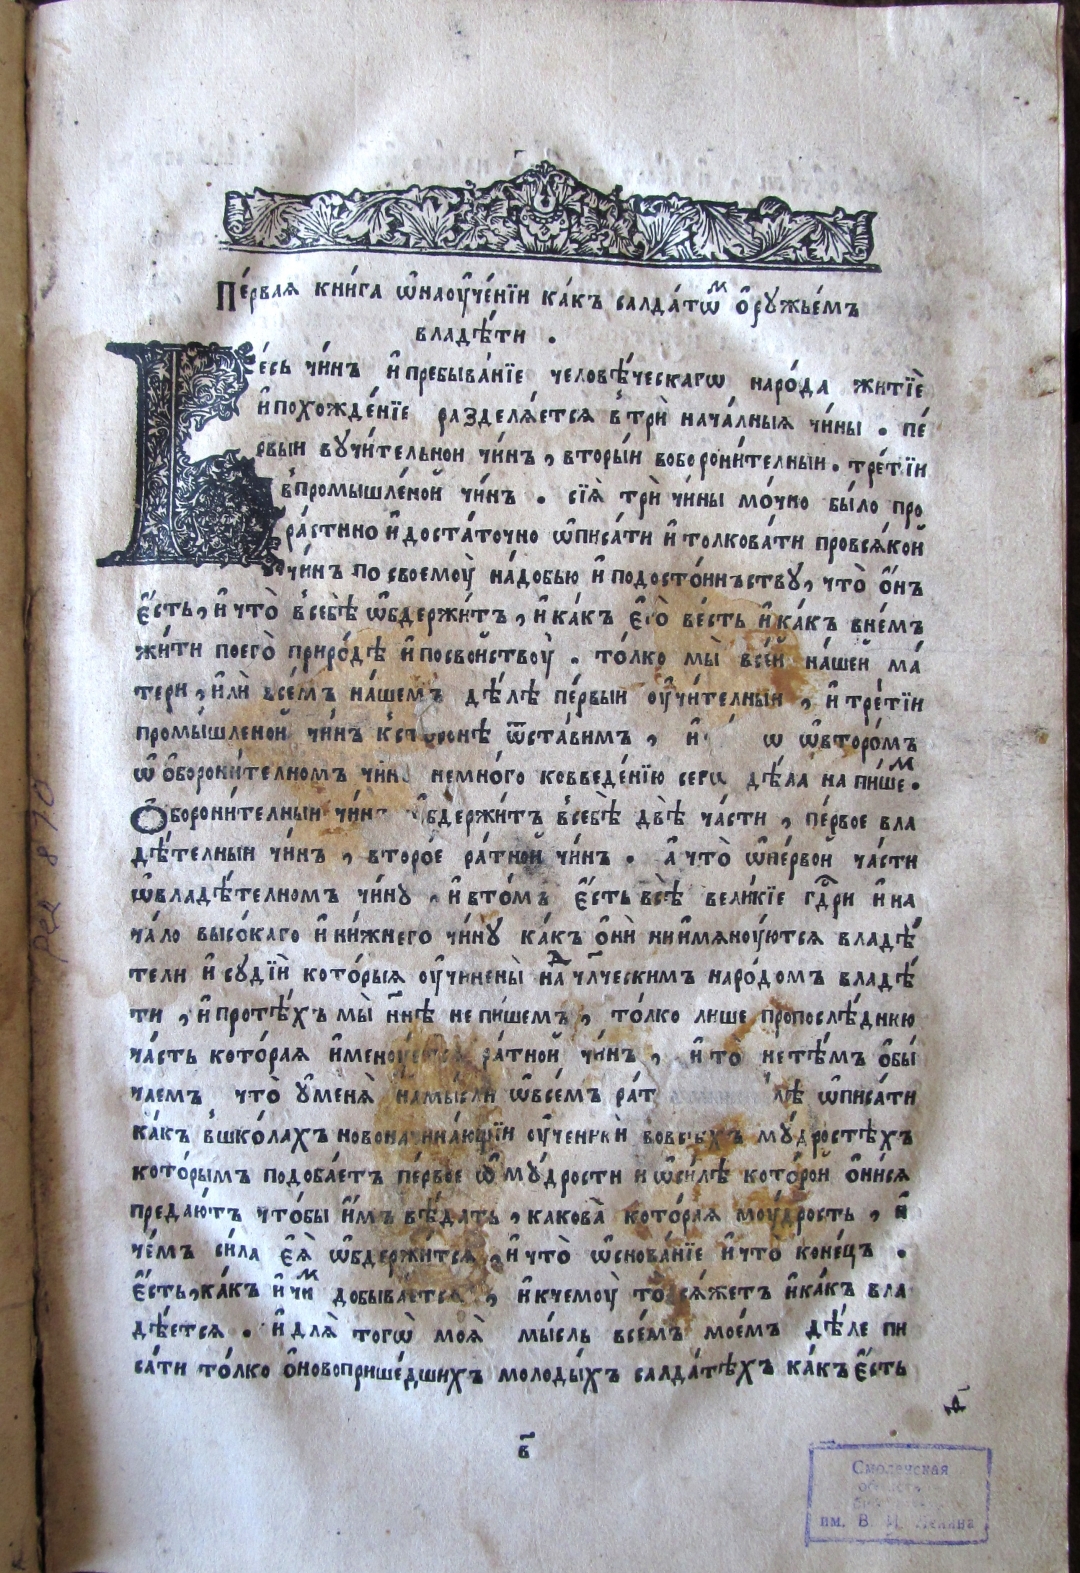 Пе́рвая кни́га ѡ҆наоу҆че́нїи ка́къ салда́тѡⷨ ѻ҆рꙋжье́мъ
владѣ́ти .
Ве́сь чи́нъ и҆пребыва́нїе человѣ́ческагѡ наро́да житїѐ
и҆похожде́нїе раздѣля́ется в̾трѝ нача́лныя чи́ны . пе́
рвыи вꙋчи́тельнои чи́нъ , вторы́и вооборони́телныи . тре́тїи
в̾промышле́ной чи́нъ . сїѧ̀ трѝ чи́ны мо́чно бы́ло про
ра́стнно и҆доста́точно ѡ҆писа́ти и҆толкова́ти провся́кой
чи́нъ по своемоу̀ на́добью и҆подосто́инъствꙋ , что̀ ѻ҆́нъ
є҆́сть , и҆что̀ в̾себѣ̀ ѡ҆бдержи́тъ , и҆ка́къ є҆го̀ ве́сть и҆ка́къ вне́мъ
жи́ти поего̀ приро́дѣ и҆посво́йствоу̀ . то́лко мы̀ все́й на́шей ма́
тери , и҆лѝ все́мъ на́шемъ дѣ́лѣ пе́рвыи оу҆чи́телныи , и҆тре́тїи
промы́шленой чи́нъ к̾сторонѣ̀ ѿста́вимъ , ѡ҆второ́мъ
ѡ҆ѻ҆борони́телномъ чинꙋ̀ немно́го ковведе́нїю сегѡ̀ дѣ́ла напи́шеⷨ .
Ѻ҆борони́телныи чи́нъ ѡ҆бдержи́тъ в̾себѣ̀ двѣ̀ ча́сти , пе́рвое вла
дѣ́телныи чи́нъ , второ́е ра́тной чи́нъ . а҆что̀ ѡ҆пе́рвой ча́сти
ѡ҆владѣ́телномъ чи́нꙋ , и҆вто́мъ є҆́сть всѣ̀ вели́кїе гдⷭ҇ри и҆на
ча́ло высо́каго и҆ни́жнего чи́нꙋ ка́къ ѻ҆нѝ ниимянꙋ́ются владѣ́
тели и҆сꙋдїѝ кото́рыя оу҆чинены̀ наⷣ чл҃ческимъ наро́домъ владѣ́
ти , и҆протѣ́хъ мы̀ нн҃ѣ непи́шемъ , то́лко лише пропослѣ́днюю
ча́сть кото́рая и҆менꙋется ра́тной чи́нъ , и҆то̀ нетѣ́мъ ѻ҆бы́
чаемъ что̀ оу҆меня̀ на́мысли ѡ҆все́мъ ѡ҆писа́ти
ка́къ в̾шко́лахъ новоначина́ющїи оу҆ченикѝ вовсѣ́хъ мꙋ́дростѣхъ
кото́рымъ подоба́етъ пе́рвое ѡ҆мꙋ́дрости и҆ѡ҆си́лѣ кото́рой ѻ҆ни́ся
предаю́тъ что́бы и҆́мъ вѣ́дать , какова̀ кото́рая мꙋ́дрость , и҆
че́мъ си́ла є҆ѧ̀ ѡ҆бдержи́тся , и҆что̀ ѡ҆снова́нїе и҆что̀ коне́цъ .
є҆́сть , ка́къ и҆чиⷨ добыва́ется , и҆кчемоу̀ тося́жетъ и҆ка́къ вла
дѣ́ется . и҆для̀ тогѡ̀ моя̀ мы́сль все́мъ мое́мъ дѣ́ле пи
са́ти то́лко ѻ҆новоприше́дшихъ молоды́хъ салда́тѣхъ ка́къ є҆́сть
в҃
Смоленская
им. В. И. Ленина